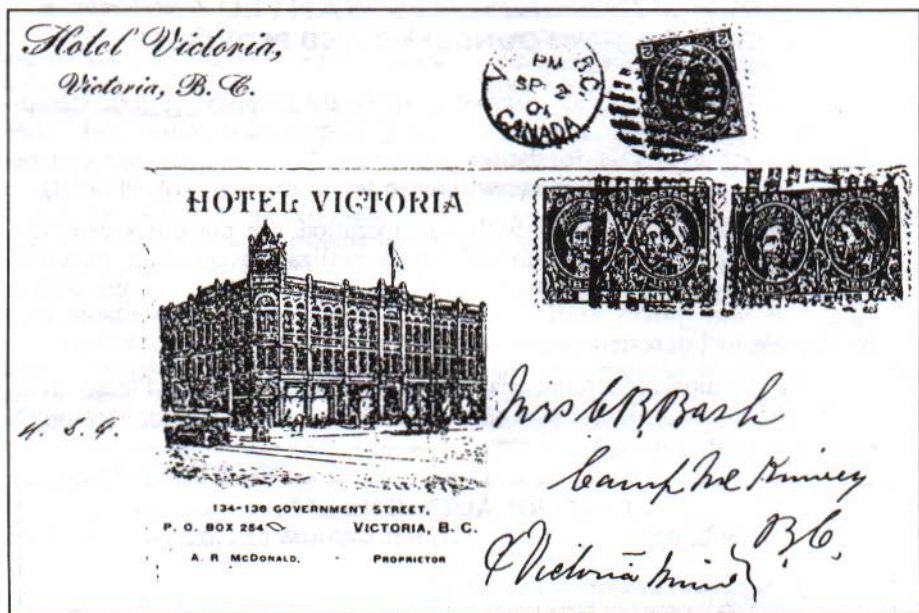 Hotel Victoria,
Victoria, B. C.
V B.C.
PM
SP 2
01
CANADA
HOTEL VICTORIA
134-138 GOVERNMENT STREET.
P. O. BOX 254 VICTORIA, B. C.
A. R McDONALD, PROPRIETOR
Mrs C R Bash
Camp Mc Kinney
B.C.
Victoria